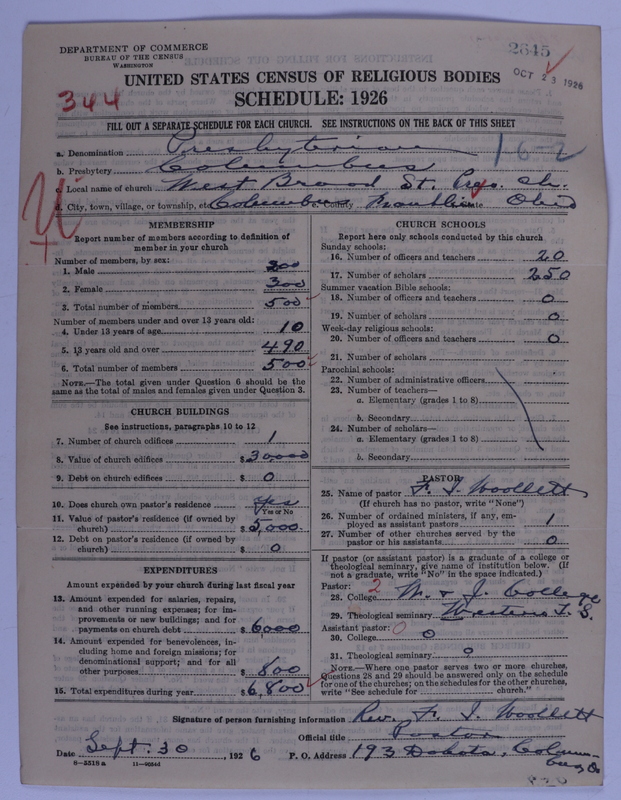 DEPARTMENT OF COMMERCE
BUREAU OF THE CENSUS
WASHINGTON
2645
OCT 23 1926
UNITED STATES CENSUS OF RELIGIOUS BODIES
344
SCHEDULE: 1926
FILL OUT A SEPARATE SCHEDULE FOR EACH CHURCH. SEE INSTRUCTIONS ON THE BACK OF THIS SHEET
a. Denomination Presbyterian 16-2
b. Presbytery Columbus
c. Local name of church West Broad St. Pres. Ch.
d. City, town, village, or township, etc. Columbus e. County Franklin State Ohio
MEMBERSHIP
Report number of members according to definition of
member in your church
Number of members, by sex:
1. Male 200
2. Female 300
3. Total number of members 500
Number of members under and over 13 years old:
4. Under 13 years of age 10
5. 13 years old and over 490
6. Total number of members 500
NOTE.—The total given under Question 6 should be the
same as the total of males and females given under Question 3.
CHURCH BUILDINGS
See instructions, paragraphs 10 to 12
7. Number of church edifices 1
8. Value of church edifices $30,000
9. Debt on church edifices $ 0
10. Does church own pastor's residence yes
Yes or No
11. Value of pastor's residence (if owned by
church) $ 5,000.
12. Debt on pastor's residence (if owned by
church) $ 0
EXPENDITURES
Amount expended by your church during last fiscal year
13. Amount expended for salaries, repairs,
and other running expenses; for im-
provements or new buildings; and for
payments on church debt $ 6,000
14. Amount expended for benevolences, in-
cluding home and foreign missions; for
denominational support; and for all
other purposes $ 800
15. Total expenditures during year $ 6,800
CHURCH SCHOOLS
Report here only schools conducted by this church
Sunday schools:
16. Number of officers and teachers 20
17. Number of scholars 250
Summer vacation Bible schools:
18. Number of officers and teachers 0
19. Number of scholars 0
Week-day religious schools:
20. Number of officers and teachers 0
21. Number of scholars
Parochial schools:
22. Number of administrative officers
23. Number of teachers—
a. Elementary (grades 1 to 8)
b. Secondary
24. Number of scholars—
a. Elementary (grades 1 to 8)
b. Secondary
PASTOR
25. Name of pastor F. I. Woollett
(If church has no pastor, write "None")
26. Number of ordained ministers, if any, em-
ployed as assistant pastors 1
27. Number of other churches served by the
pastor or his assistants 0
If pastor (or assistant pastor) is a graduate of a college or
theological seminary, give name of institution below. (If
not a graduate, write "No" in the space indicated.)
Pastor: 2
28. College W. & J. College
29. Theological seminary Western T. S.
Assistant pastor: 0
30. College 0
31. Theological seminary 0
NOTE.—Where one pastor serves two or more churches,
Questions 28 and 29 should be answered only on the schedule
for one of the churches; on the schedules for the other churches,
write "See schedule for church."
Signature of person furnishing information Rev. F. I. Woollett
Official title Pastor
Date Sept. 30 1926 P. O. Address 193 Dakota, Colum-
bus, O
8-5518 a